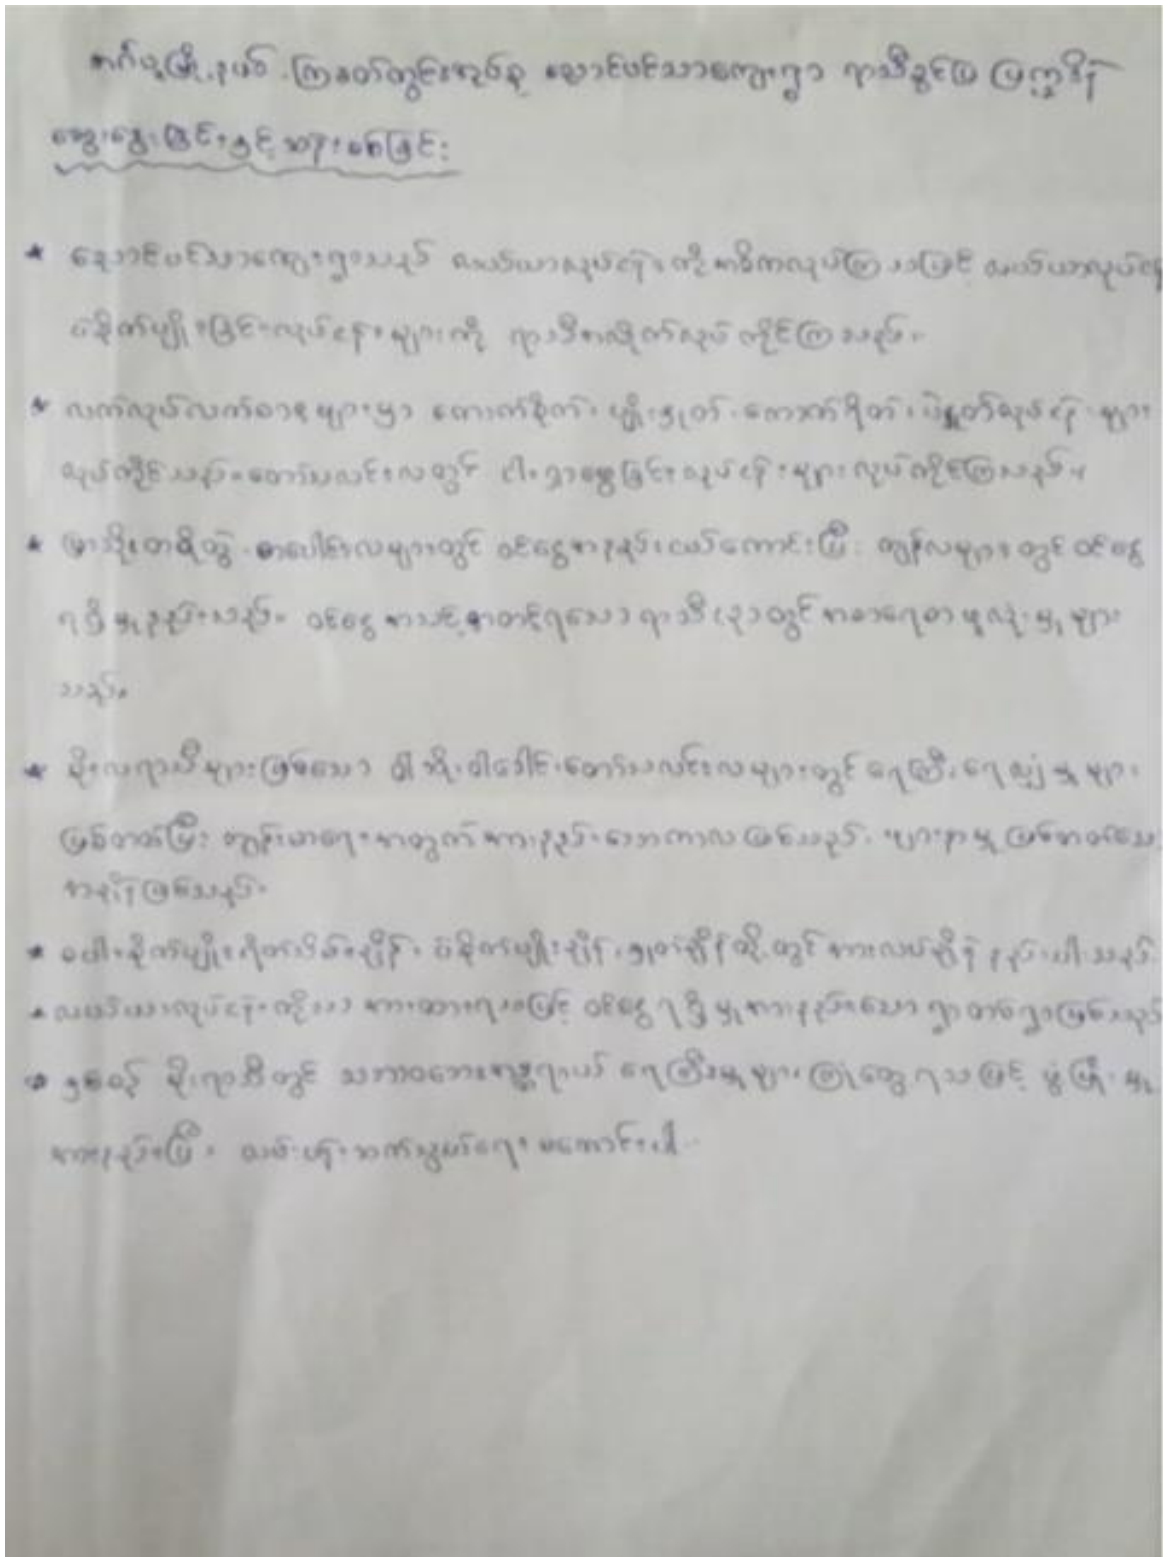 အင်္ဂပူမြို့နယ် ကြခတ်တွင်းအုပ်စု ညောင်ပင်သာကျေးရွာ ရာသီခွင်ပြ ပြက္ခဒိန်
ဆွေးနွေးခြင်းနှင့် ဆန်းစစ်ခြင်း
* ညောင်ပင်သာကျေးရွာသည် လယ်ယာလုပ်ငန်းကို အဓိကလုပ်ကြသဖြင့် လယ်ယာလုပ်ငန်း
ပဲစိုက်ပျိုးခြင်းလုပ်ငန်းများကို ရာသီအလိုက်လုပ်ကိုင်ကြသည်။
* လက်လုပ်လက်စားများမှာ ကောက်စိုက်၊ ပျိုးနှုတ်၊ ကောက်ရိတ်၊ ပဲနှုတ်လုပ်ငန်းများ
လုပ်ကိုင်သည်။ တော်သလင်းလတွင် ငါးရှာဖွေခြင်းလုပ်ငန်းများ လုပ်ကိုင်ကြသည်။
* ပြာသို၊ တပို့တွဲ၊ တပေါင်းလများတွင် ဝင်ငွေအနည်းငယ်ကောင်းပြီး ကျန်လများတွင် ဝင်ငွေ
ရရှိမှုနည်းသည်။ ဝင်ငွေအသင့်အတင့်ရသော ရာသီဥတုတွင် အစားရေစာ ဖူလုံမှုများ
သည်။
* မိုးလရာသီများဖြစ်သော ဝါဆို၊ ဝါခေါင်၊ တော်သလင်းလများတွင် ရေကြီးရေလျှံမှုများ
ဖြစ်တတ်ပြီး ကျန်းမာရေးအတွက် အားနည်းသောကာလ ဖြစ်သည်၊ ဖျားနာမှု ဖြစ်တတ်သော
အချိန်ဖြစ်သည်။
* စပါးစိုက်ပျိုးရိတ်သိမ်းချိန်၊ ပဲစိုက်ပျိုးချိန်၊ နှုတ်ချိန်တို့တွင် အားလပ်ချိန် နည်းပါးသည်။
* လယ်ယာလုပ်ငန်းကိုသာ အားထားရသဖြင့် ဝင်ငွေရရှိမှုအားနည်းသော ရွာတစ်ရွာဖြစ်သည်
* နှစ်စဉ် မိုးရာသီတွင် သဘာဝဘေးအန္တရာယ် ရေကြီးမှုများ ကြုံတွေ့ရသဖြင့် ဖွံ့ဖြိုးမှု
အားနည်းပြီး လမ်းပန်းဆက်သွယ်ရေး မကောင်းပါ။